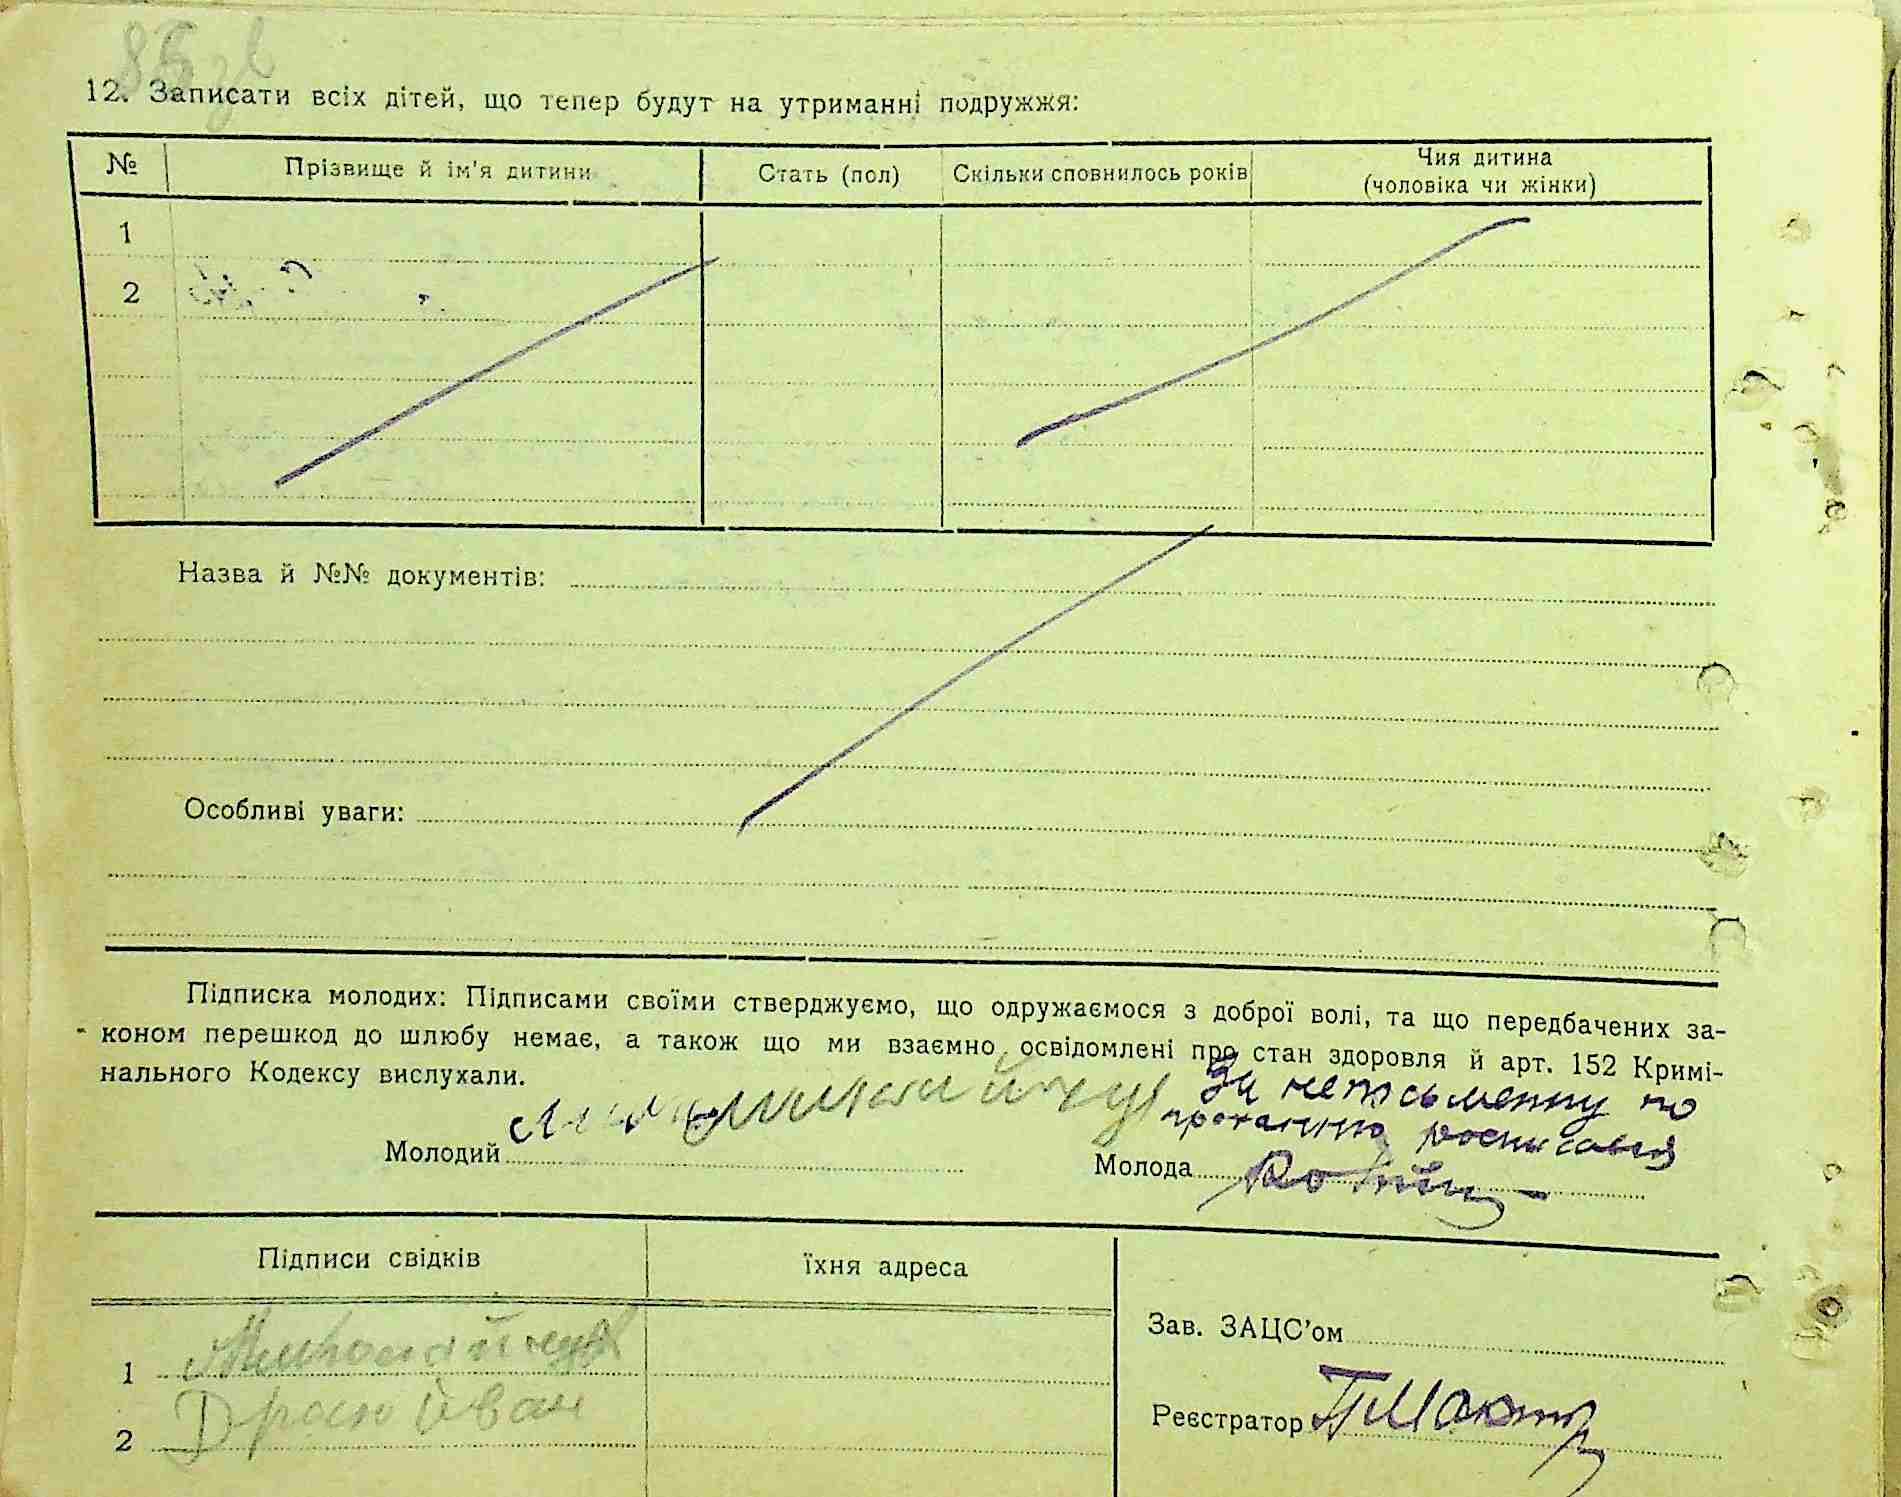 85 зв
12. Записати всіх дітей, що тепер будут на утриманні подружжя:
№ Прізвище й ім'я дитини Стать (пол) Скільки сповнилось років Чия дитина (чоловіка чи жінки)
1
2
Назва й №№ документів:
Особливі уваги:
Підписка молодих: Підписами своїми стверджуємо, що одружаємося з доброї волі, та що передбачених за-
коном перешкод до шлюбу немає, а також що ми взаємно освідомлені про стан здоровля й арт. 152 Кримі-
нального Кодексу вислухали.
За неписьменну по
проханню росписався
Молодий Молода
Підписи свідків їхня адреса
Зав. ЗАЦС'ом
1 Миколайчук
Реєстратор
2 Іван